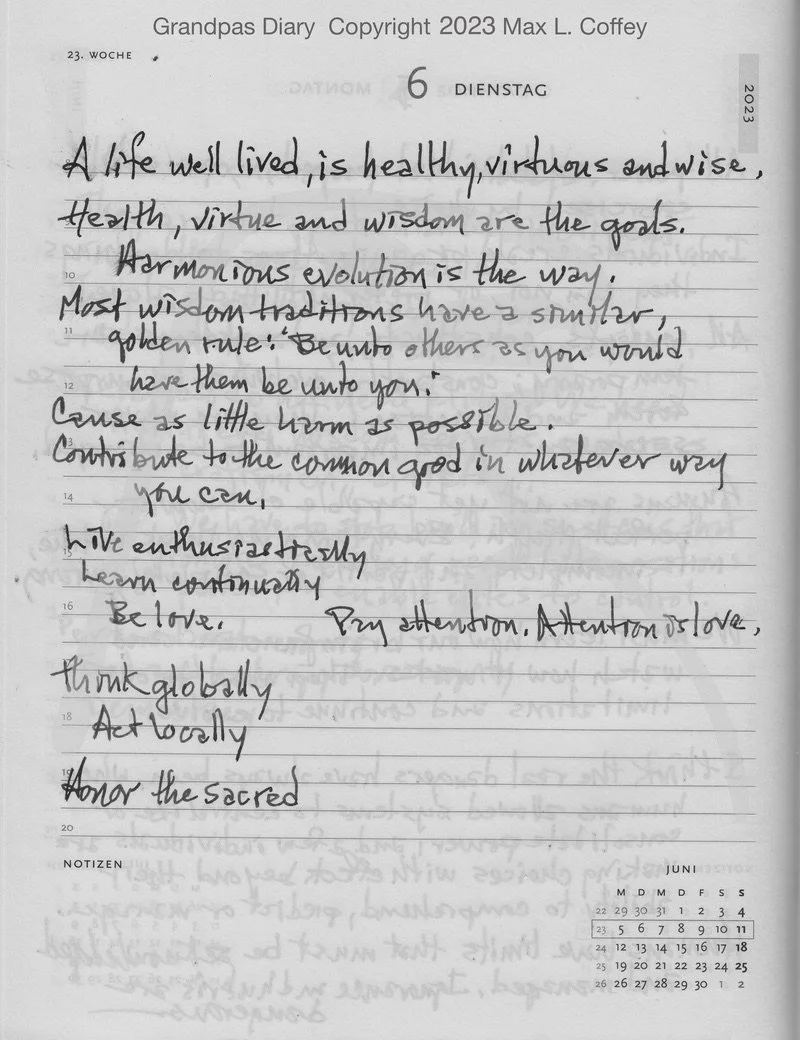 Grandpas Diary Copyright 2023 Max L. Coffey
23. WOCHE
6 DIENSTAG
2023
A life well lived, is healthy, virtuous and wise,
Health, virtue and wisdom are the goals.
10 Harmonious evolution is the way.
Most wisdom traditions have a similar,
11 golden rule: "Be unto others as you would
12 have them be unto you."
Cause as little harm as possible.
13 Contribute to the common good in whatever way
14 you can,
15 Live enthusiastically
Learn continually
16 Be love. Pay attention. Attention is love,
think globally
18 Act locally
19 Honor the sacred
20
NOTIZEN
JUNI
M D M D F S S
22 29 30 31 1 2 3 4
23 5 6 7 8 9 10 11
24 12 13 14 15 16 17 18
25 19 20 21 22 23 24 25
26 26 27 28 29 30 1 2